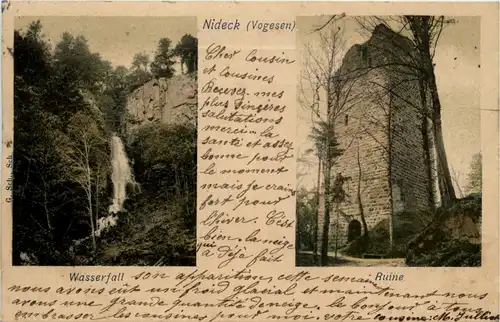 Nideck (Vogesen)
Cher Cousin
et cousines
Recevez mes
plus sincères
salutations
merci la
santé et assez
bonne pour
le moment
mais je crair
fort pour
l'hiver. C'est
bien la neige
qui a déjà fait
G. Sch. Sch.
Wasserfall
Ruine
son apparition cette semaine.
nous avons eut un froid glacial et maintenant nous
avons une grande quantité de neige. le bonjour à tous
embrasser les cousines pour moi, votre cousine